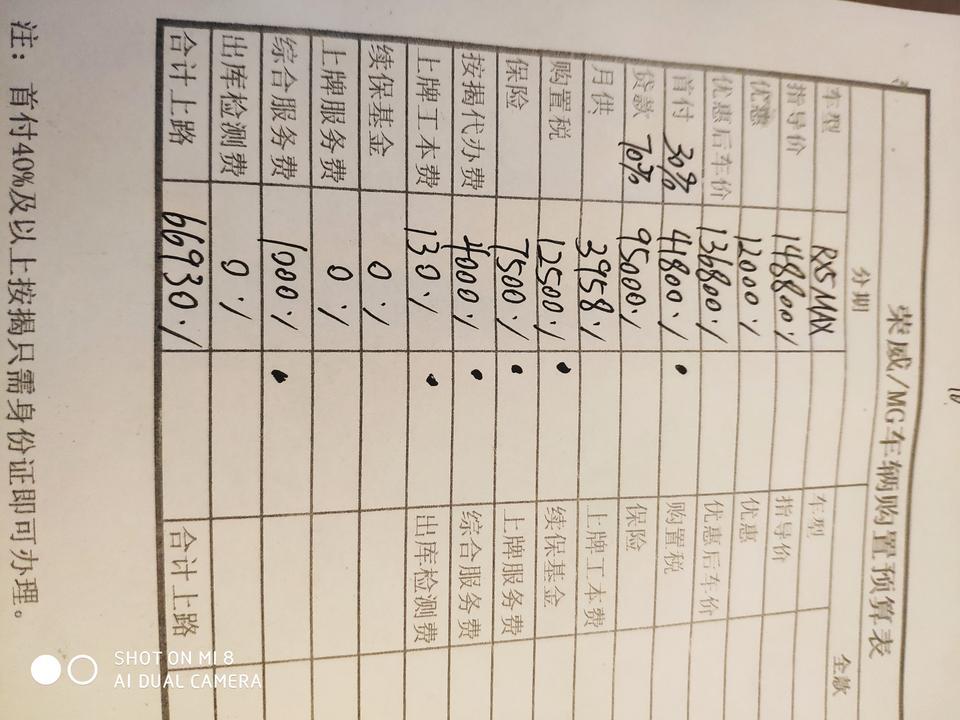 荣威/MG车辆购置预算表
分期 全款
车型 RX5 MAX 车型
指导价 148800./ 指导价
优惠 12000./ 优惠
优惠后车价 136800./ 优惠后车价
首付 30% 41800./ 购置税
贷款 70% 95000./ 保险
月供 3958./ 上牌工本费
购置税 12500./ 续保基金
保险 7500./ 上牌服务费
按揭代办费 4000./ 综合服务费
上牌工本费 130./ 出库检测费
续保基金 0./
上牌服务费 0./
综合服务费 1000./
出库检测费 0./
合计上路 66930./ 合计上路
注：首付40%及以上按揭只需身份证即可办理。
SHOT ON MI 8
AI DUAL CAMERA